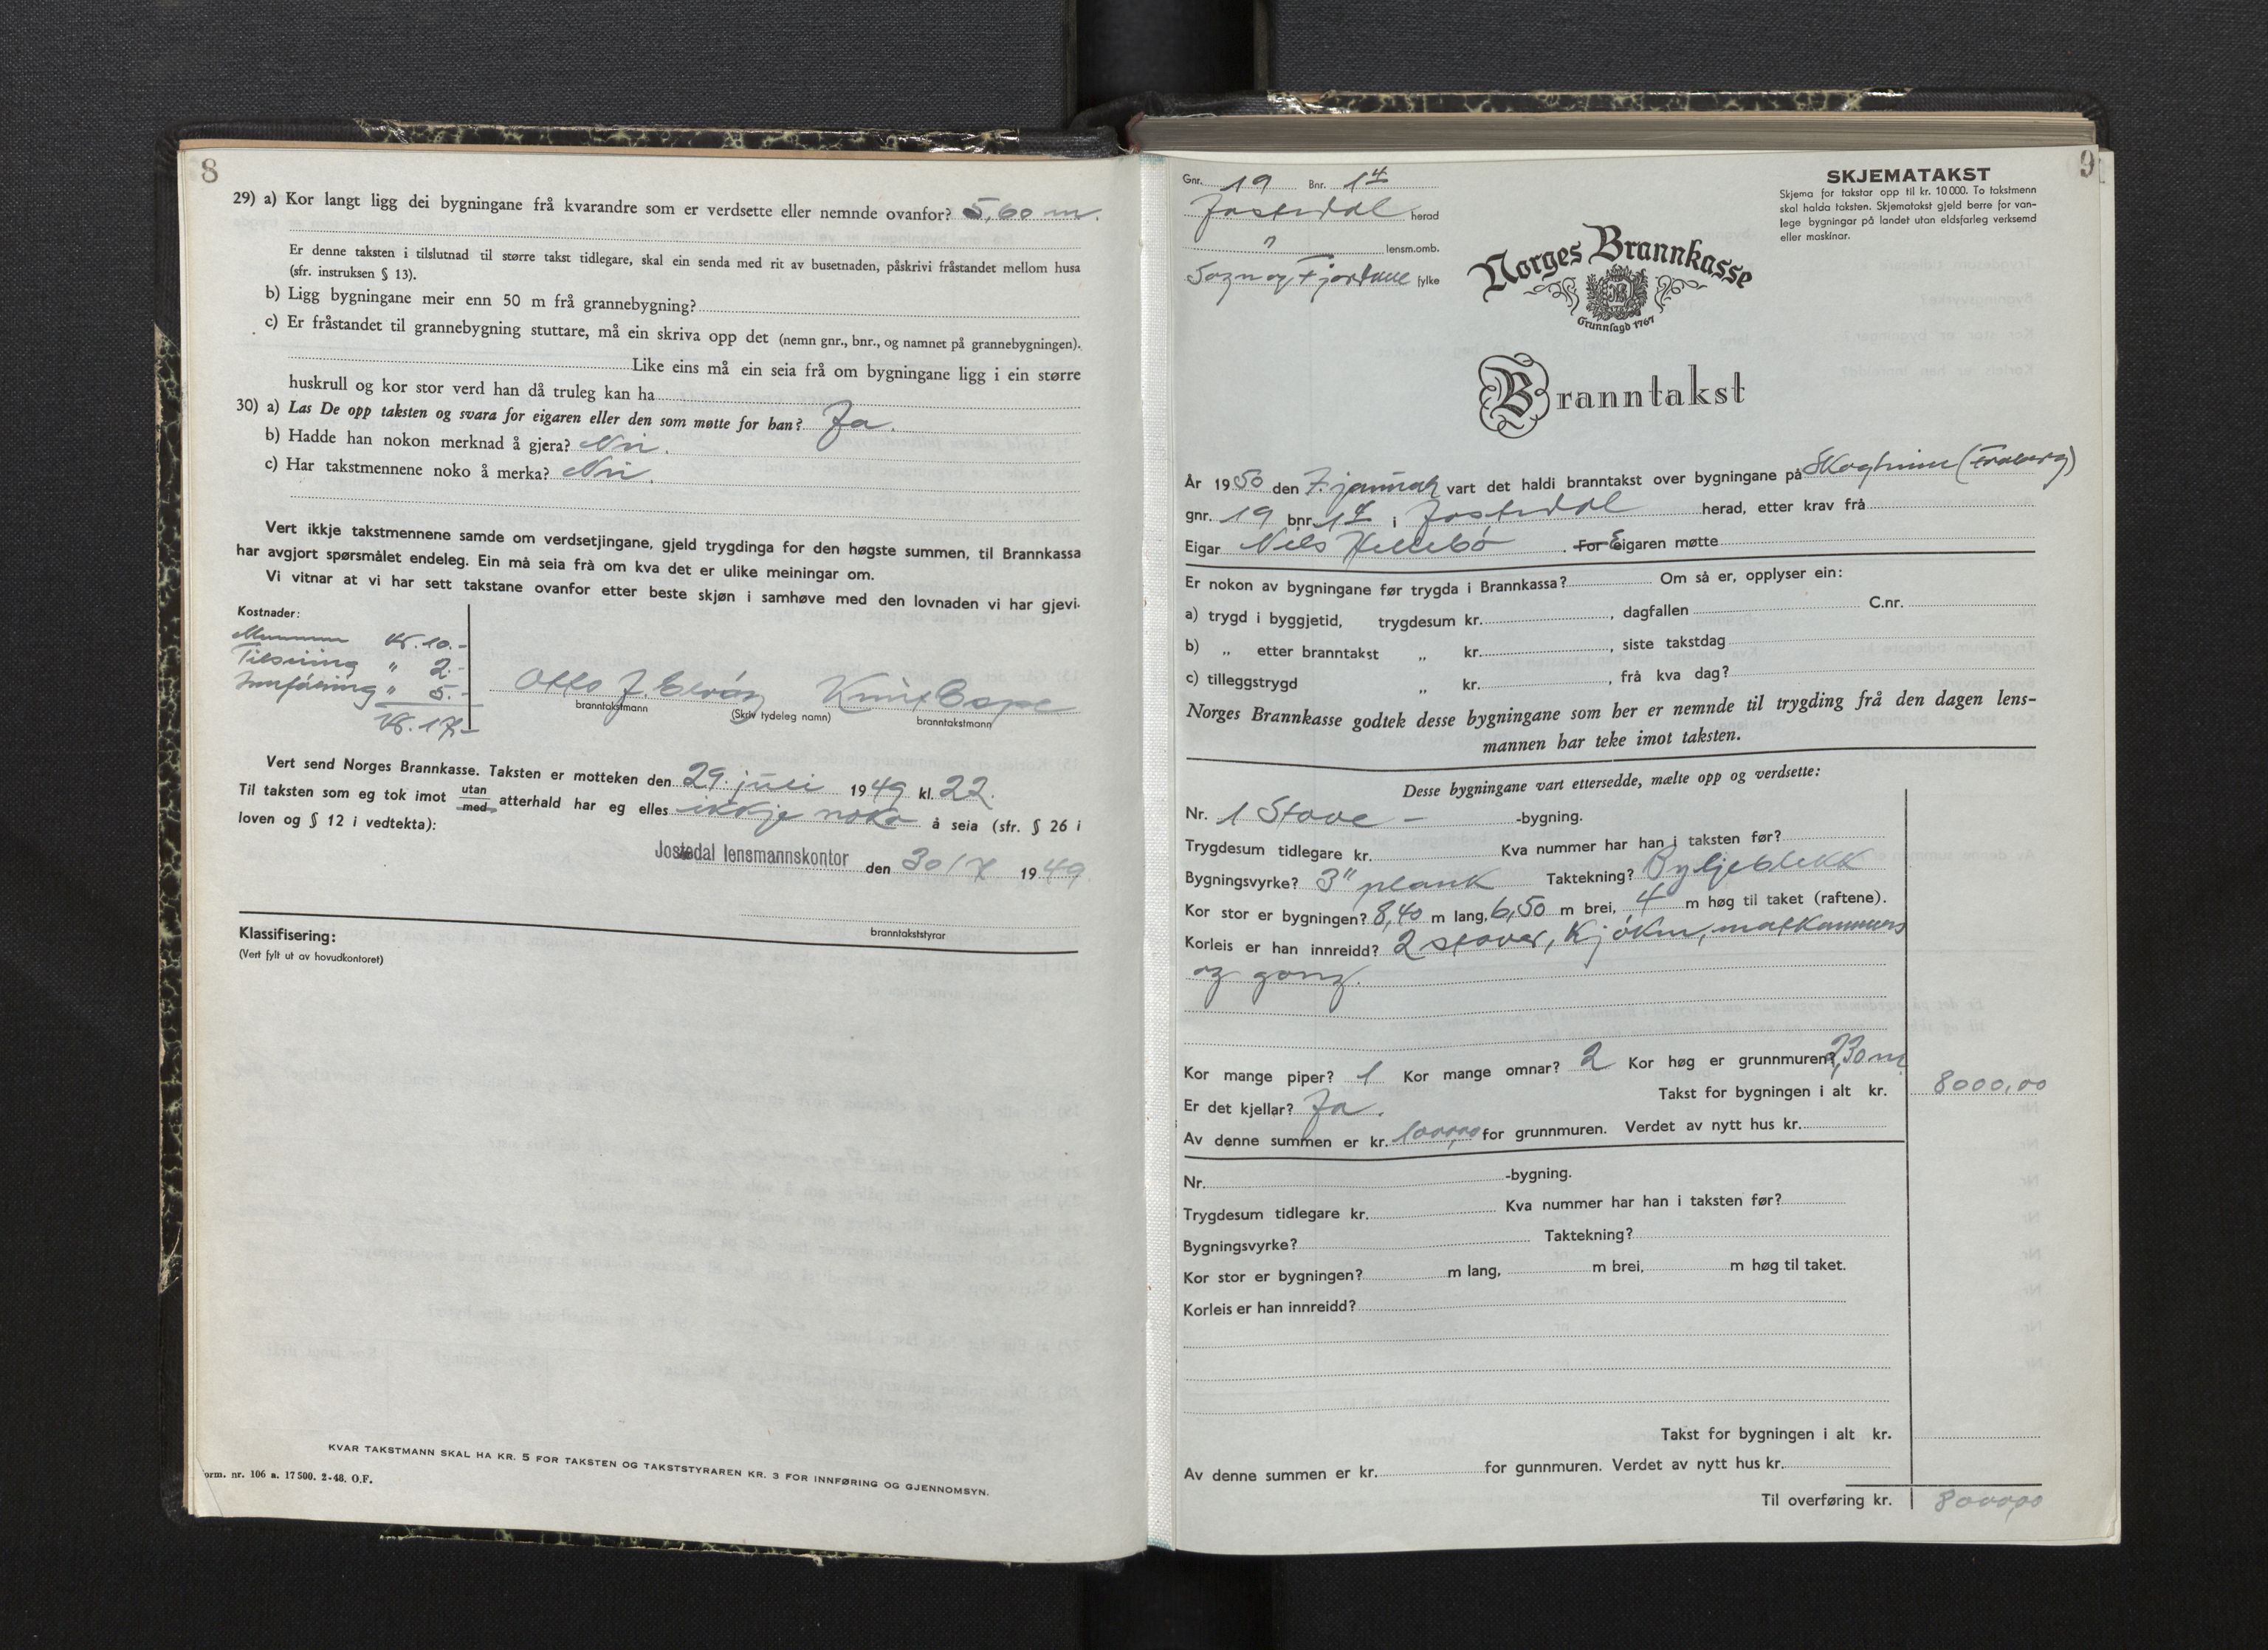 8
29) a) Kor langt ligg dei bygningane frå kvarandre som er verdsette eller nemnde ovanfor? 5,60 m.
Er denne taksten i tilslutnad til større takst tidlegare, skal ein senda med rit av busetnaden, påskrivi fråstandet mellom husa
(sfr. instruksen § 13).
b) Ligg bygningane meir enn 50 m frå grannebygning?
c) Er fråstandet til grannebygning stuttare, må ein skriva opp det (nemn gnr., bnr., og namnet på grannebygningen).
Like eins må ein seia frå om bygningane ligg i ein større
huskrull og kor stor verd han då truleg kan ha
30) a) Las De opp taksten og svara for eigaren eller den som møtte for han? Ja.
b) Hadde han nokon merknad å gjera? Nei.
c) Har takstmennene noko å merka? Nei.
Vert ikkje takstmennene samde om verdsetjingane, gjeld trygdinga for den høgste summen, til Brannkassa
har avgjort spørsmålet endeleg. Ein må seia frå om kva det er ulike meiningar om.
Vi vitnar at vi har sett takstane ovanfor etter beste skjøn i samhøve med den lovnaden vi har gjevi.
Kostnader:
Mennene kr. 10.-
Tilsening " 2.-
Innføring " 5.-
kr. 17,-
Otto J. Knut Espe
branntakstmann (Skriv tydeleg namn) branntakstmann
Vert send Norges Brannkasse. Taksten er motteken den 29. juli 1949 kl. 22.
Til taksten som eg tok imot utan med atterhald har eg elles ikkje noko å seia (sfr. § 26 i
loven og § 12 i vedtekta):
Jostedal lensmannskontor den 30/7 1949.
branntakststyrar
Klassifisering:
(Vert fylt ut av hovudkontoret)
KVAR TAKSTMANN SKAL HA KR. 5 FOR TAKSTEN OG TAKSTSTYRAREN KR. 3 FOR INNFØRING OG GJENNOMSYN.
orm. nr. 106 a. 17 500. 2-48. O.F.
9
Gnr. 19 Bnr. 14
Jostedal herad
" lensm.omb.
Sogn og Fjordane fylke
SKJEMATAKST
Skjema for takstar opp til kr. 10 000. To takstmenn
skal halda taksten. Skjematakst gjeld berre for van-
lege bygningar på landet utan eldsfarleg verksemd
eller maskinar.
Norges Brannkasse
Grunnlagd 1767
Branntakst
År 1950 den 7. januar vart det haldi branntakst over bygningane på Skogheim
gnr. 19 bnr. 14 i Jostedal herad, etter krav frå
Eigar Nils Hellebö. For Eigaren møtte
Er nokon av bygningane før trygda i Brannkassa? Om så er, opplyser ein:
a) trygd i byggjetid, trygdesum kr. , dagfallen C.nr.
b) „ etter branntakst „ kr. , siste takstdag
c) tilleggstrygd „ kr. , frå kva dag?
Norges Brannkasse godtek desse bygningane som her er nemnde til trygding frå den dagen lens-
mannen har teke imot taksten.
Desse bygningane vart ettersedde, mælte opp og verdsette:
Nr. 1 Stove - -bygning.
Trygdesum tidlegare kr. Kva nummer har han i taksten før?
Bygningsvyrke? 3" plank Taktekning? Byljeblekk
Kor stor er bygningen? 8,40 m lang, 6,50 m brei, 4 m høg til taket (raftene).
Korleis er han innreidd? 2 stover, kjöken, matkammers
og gang.
Kor mange piper? 1 Kor mange omnar? 2 Kor høg er grunnmuren? 2,30 m
Er det kjellar? Ja. Takst for bygningen i alt kr. 8000,00
Av denne summen er kr. 1000,00 for grunnmuren. Verdet av nytt hus kr.
Nr. -bygning.
Trygdesum tidlegare kr. Kva nummer har han i taksten før?
Bygningsvyrke? Taktekning?
Kor stor er bygningen? m lang, m brei, m høg til taket.
Korleis er han innreidd?
Takst for bygningen i alt kr.
Av denne summen er kr. for gunnmuren. Verdet av nytt hus kr.
Til overføring kr. 8000,00